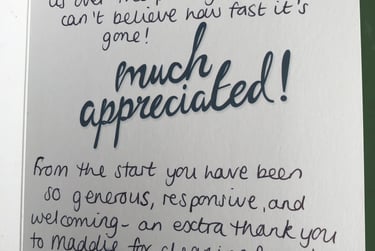 can't believe how fast it's
gone!
much
appreciated!
From the start you have been
so generous, responsive, and
welcoming - an esctra thank you
to maddie for cleaning